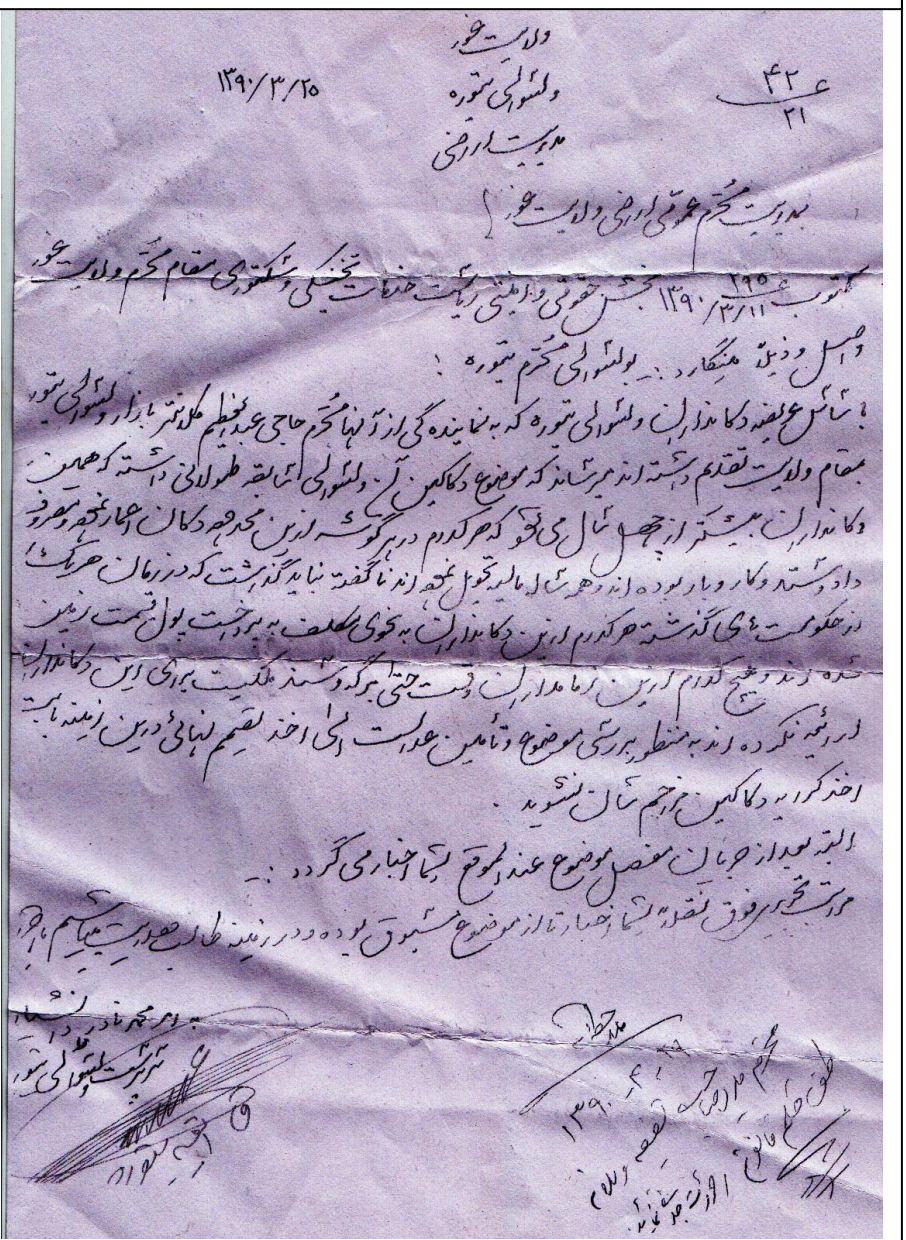 ولایت غور
۴۲
۲۱
ولسوالی تیوره
۱۳۹۰/۳/۲۵
مدیریت اراضی
بمدیریت محترم عمومی اراضی ولایت غور !
مکتوب ۲۹۵ ۱۳۹۰/۳/۱۱ بخش حقوقی و امنیتی ریاست خدمات تخنیکی و سکتوری مقام محترم ولایت غور
واصل و ذیلاً مینگارد :- بولسوالی محترم تیوره :
عریضه دکانداران ولسوالی تیوره که به نماینده گی از آنها محترم حاجی عبدالعظیم کلانتر بازار ولسوالی تیوره
بمقام ولایت تقدیم داشته اند میرساند که موضوع دکاکین آن ولسوالی سابقه طولانی داشته که همین
دکانداران بیشتر از چهل سال می شود که هر کدام در هر گوشه ازین دکان اعمار نموده و مصروف
داد و ستد و کار و بار بوده اند و همه ساله مالیه تحویل نموده اند ناگفته نباید گذاشت که در زمان هر یک
از حکومت های گذشته هر کدام ازین دکانداران به نحوی مکلف به پرداخت پول قیمت زمین
شده اند و هیچ کدام ازین زمامداران وقت حتی برگه و سند ملکیت برای این دکانداران
ارائیه نکرده اند به منظور بررسی موضوع و تأمین عدالت الی اخذ تصمیم نهائی درین زمینه بابت
اخذ کرایه دکاکین مزاحم شان نشوید .
البته بعد از جریان مفصل موضوع عندالموقع بشما اخبار می گردد :-
مراتب تحریر فوق نقلاً بشما اخبار تا از موضوع مسبوق بوده و در زمینه طالب هدایت میباشیم
محمد نادر
سرپرست ولسوالی تیوره
ملاحظه شد
محترم مدیر صاحب
۱۳۹۰